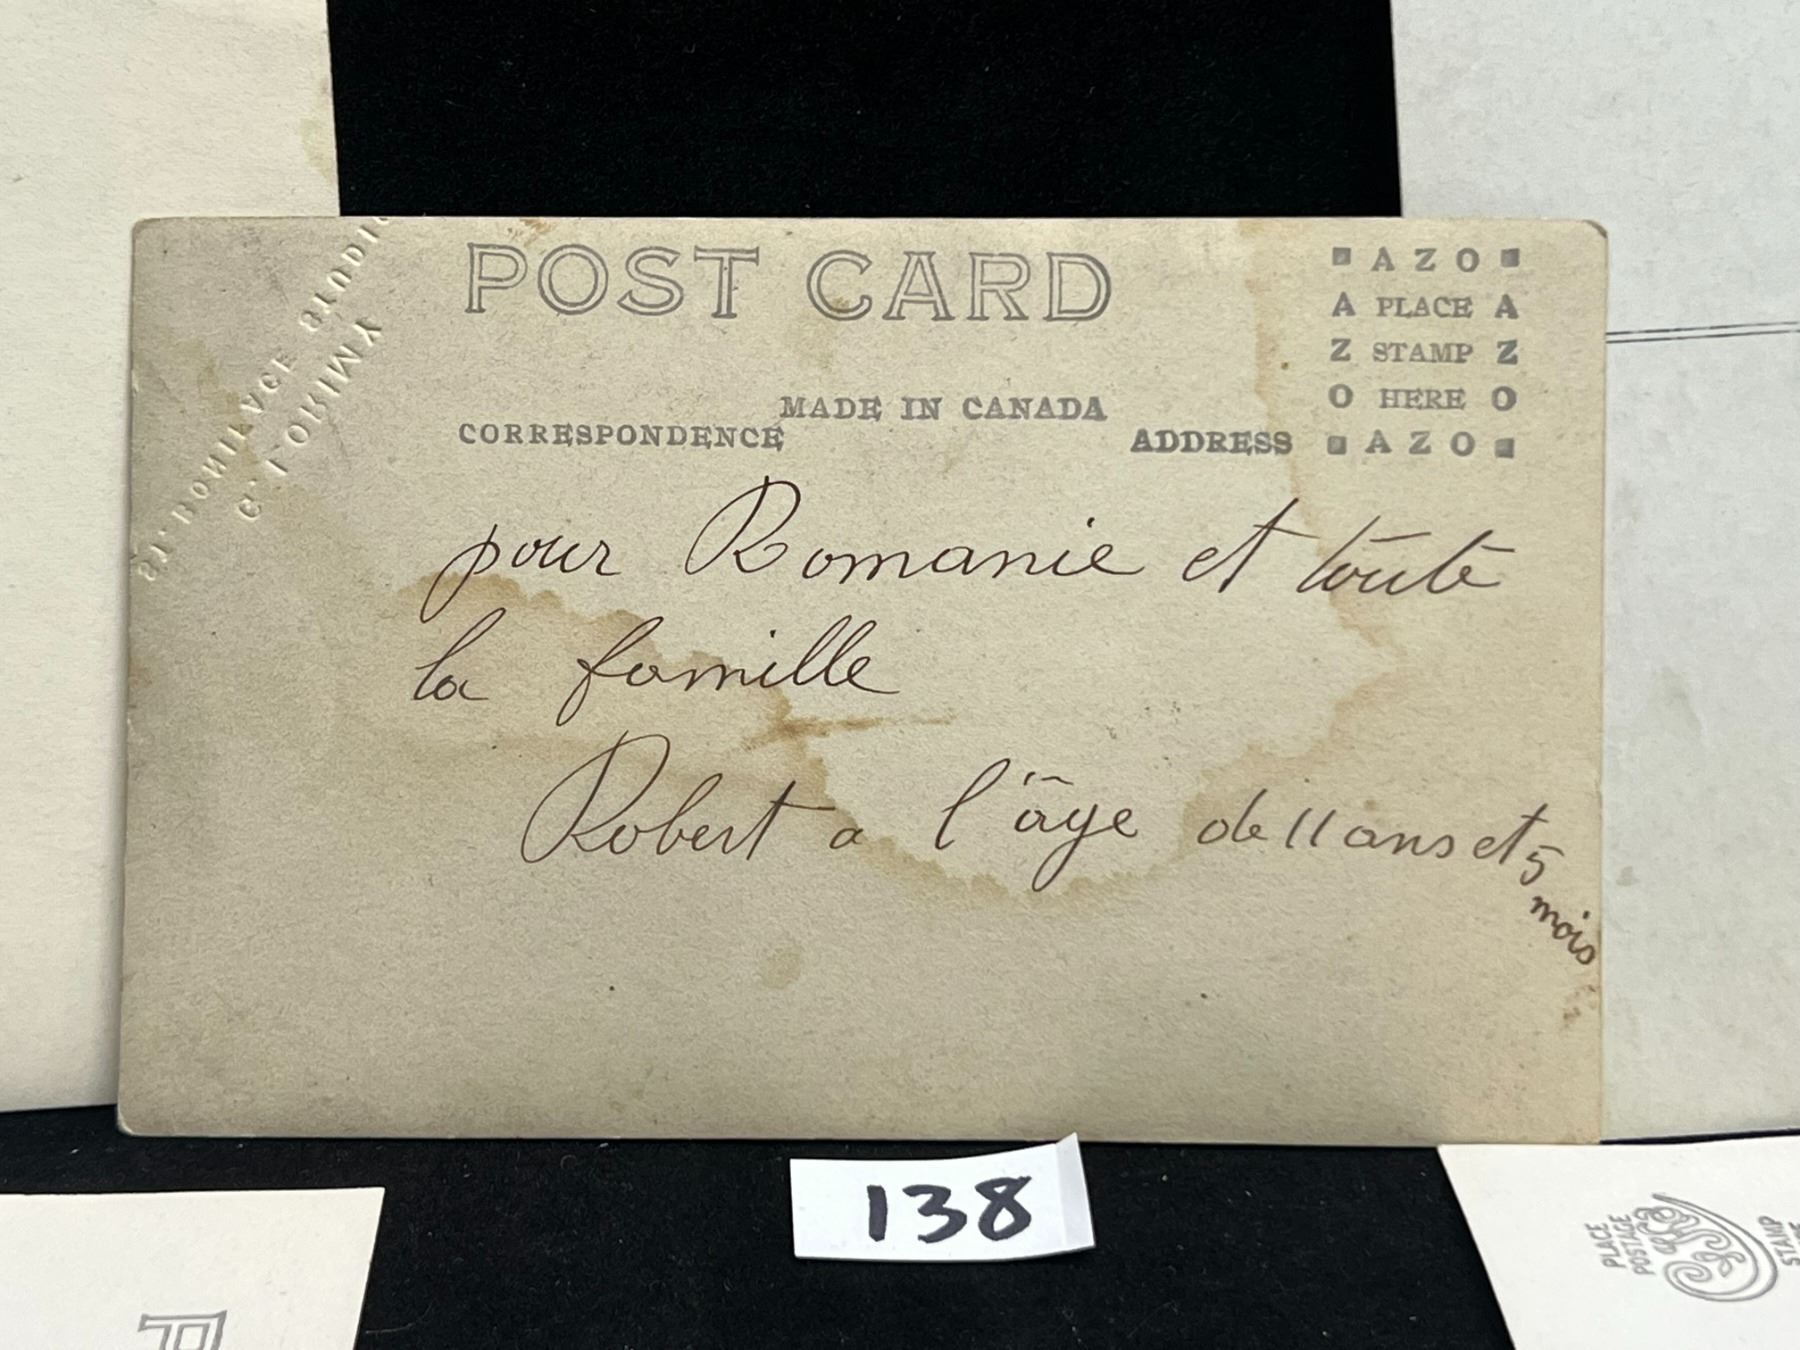 ST. BONIFACE STUDIO
C. LORIMY
POST CARD
MADE IN CANADA
CORRESPONDENCE
ADDRESS
■ A Z O ■
A PLACE A
Z STAMP Z
O HERE O
■ A Z O ■
pour Romanie et toute
la famille
Robert a l'âge de 11 ans et 5
mois
138
P
PLACE
POSTAGE
STAMP